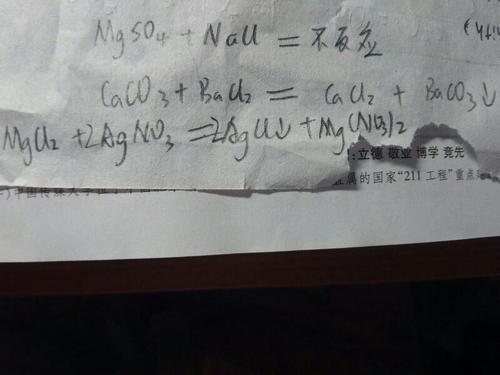 MgSO4 + NaCl = 不反应
CaCO3 + BaCl2 = CaCl2 + BaCO3↓
MgCl2 + 2AgNO3 = 2AgCl↓ + Mg(NO3)2
：立德 敬业 博学 竞先
属的国家“211工程”重点